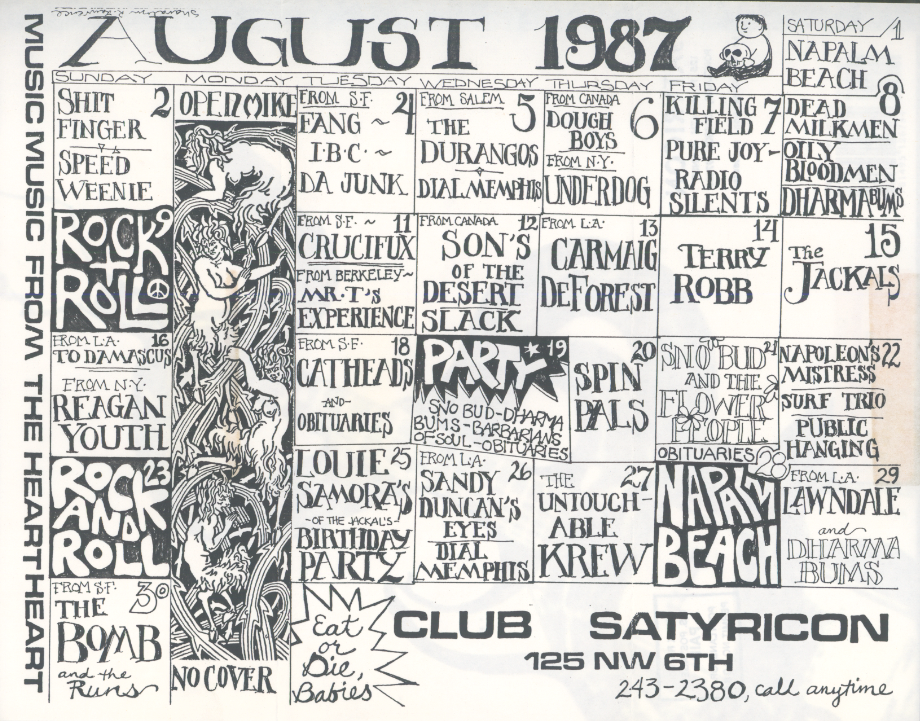 AUGUST 1987
MUSIC MUSIC FROM THE HEARTHEART
SUNDAY MONDAY TUESDAY WEDNESDAY THURSDAY FRIDAY SATURDAY 1
NAPALM
BEACH
SHIT 2
FINGER
SPEED
WEENIE
OPEN MIKE
FROM S.F. 4
FANG ~
I·B·C· ~
DA JUNK
FROM SALEM 5
THE
DURANGOS
DIAL MEMPHIS
FROM CANADA 6
DOUGH
BOYS
FROM N.Y.
UNDERDOG
KILLING 7
FIELD
PURE JOY-
RADIO
SILENTS
8
DEAD
MILKMEN
OILY
BLOODMEN
DHARMA BUMS
ROCK 9
+
ROLL
FROM S.F. ~ 11
CRUCIFUX
FROM BERKELEY ~
MR·T'S
EXPERIENCE
FROM CANADA 12
SON'S
OF THE
DESERT
SLACK
FROM L.A. 13
CARMAIG
DEFOREST
14
TERRY
ROBB
15
The
JACKALS
FROM L.A. 16
TO DAMASCUS
FROM N.Y.
REAGAN
YOUTH
FROM S.F. 18
CATHEADS
-AND-
OBITUARIES
PARTY 19
SNO BUD-DHARMA
BUMS-BARBARIANS
OF SOUL-OBITUARIES
20
SPIN
PALS
SNO BUD 21
AND THE
FLOWER
PEOPLE
OBITUARIES
NAPOLEON'S 22
MISTRESS
SURF TRIO
PUBLIC
HANGING
ROCK 23
AND
ROLL
LOUIE 25
SAMORA'S
-OF THE JACKAL'S-
BIRTHDAY
PARTY
FROM L.A. 26
SANDY
DUNCAN'S
EYES
DIAL
MEMPHIS
THE 27
UNTOUCH-
ABLE
KREW
28
NAPALM
BEACH
FROM L.A. 29
LAWNDALE
and
DHARMA
BUMS
FROM S.F. 30
THE
BOMB
and the
Runs
NO COVER
Eat
or
Die,
Babies
CLUB SATYRICON
125 NW 6TH
243-2380, call anytime